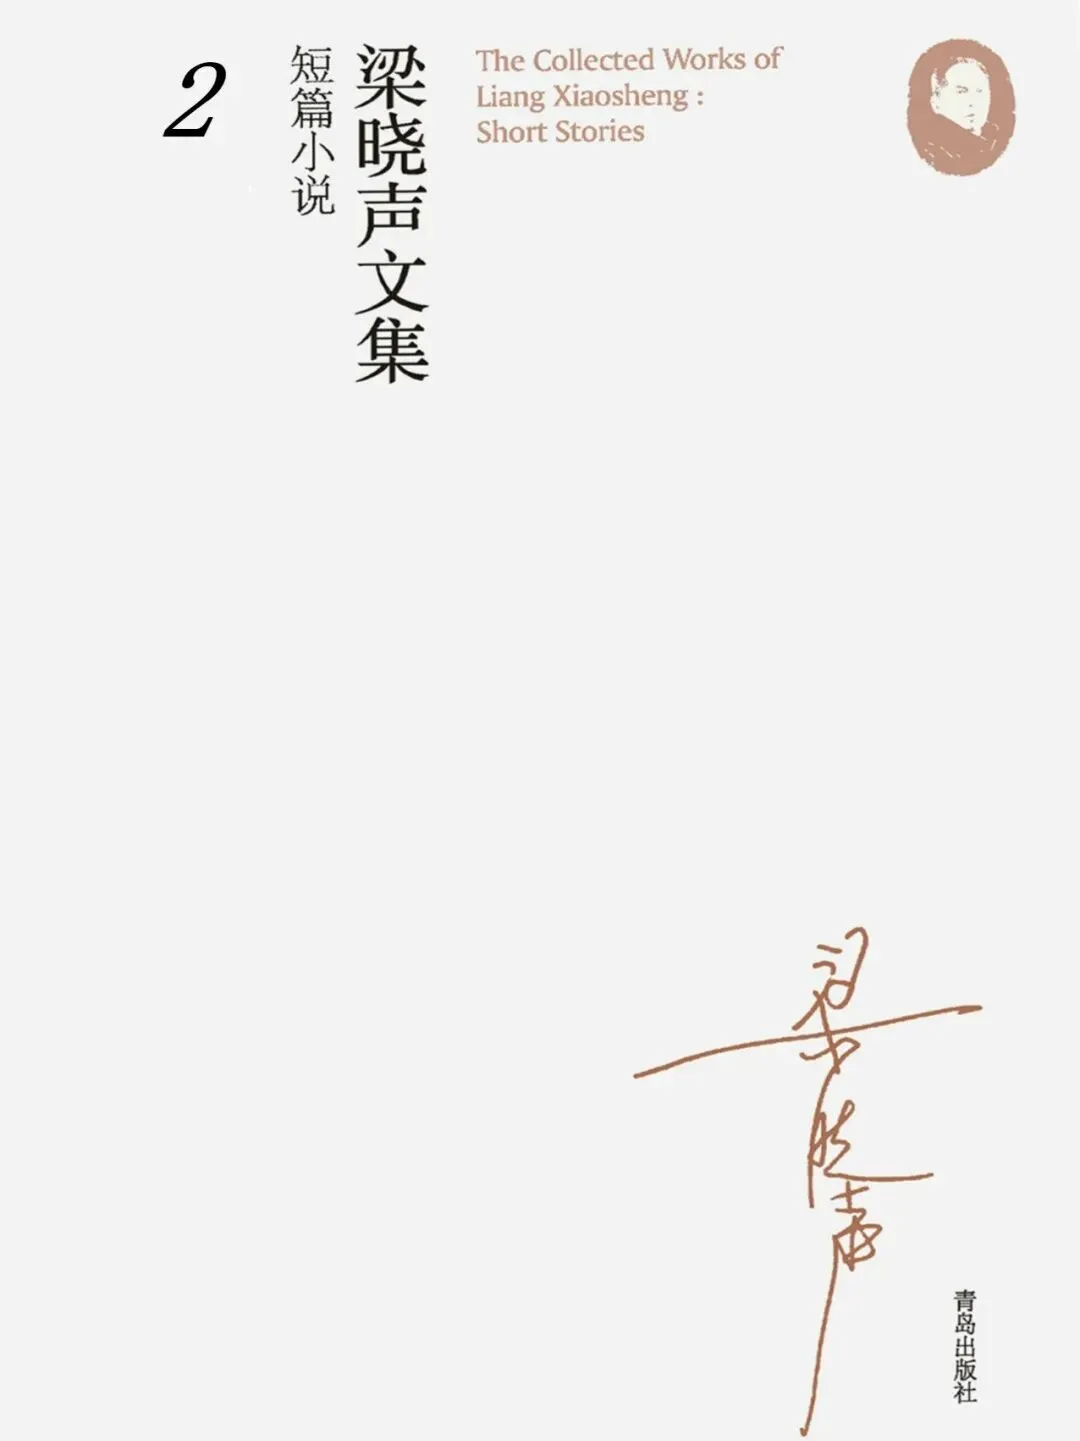 梁晓声文集
短篇小说
2
The Collected Works of
Liang Xiaosheng :
Short Stories
梁晓声
青岛出版社